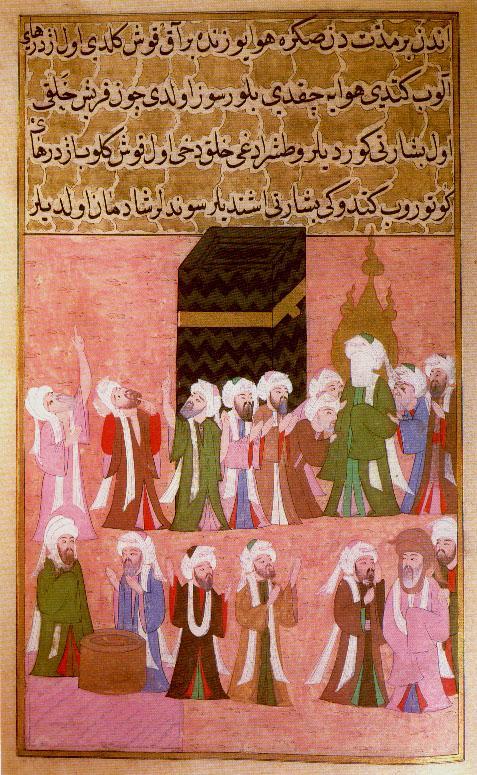 اندن بر مدت دن صكره هوا یوزندن بر آق قوش كلدی اول ازدرهای
آلوب كتدی هوایه چقدی بلورسوز اولدی چون قریش خلقی
اول بشارتی كوردیلر و طشرا رغی خلق دخی اول قوش كلوب ازدرهای
كوتوروب كتدوكی بشارتی اشتدیلر سوندلر شادمان اولدیلر